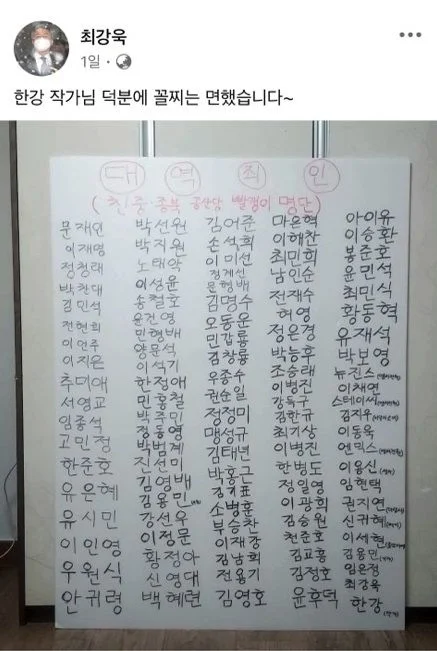 최강욱
1일
한강 작가님 덕분에 꼴찌는 면했습니다~
대 역 죄 인
(친중 종북 공산당 빨갱이 명단)
문재인
이재명
정청래
박찬대
김민석
전현희
이언주
이지은
추미애
서영교
임종석
고민정
한준호
유은혜
유시민
이인영
우원식
안귀령
박선원
박지원
노태악
이성윤
송철호
윤건영
민형배
양문석
이석기
한정애
민홍철
박주민
정동영
박범계
진선미
김영배
김용민
강선우
이정문
황정아
신영대
백혜련
김어준
손석희
이미선
정계선
문형배
김명수
오동운
민갑룡
김창룡
우종수
권순일
정정미
맹성규
김태년
박홍근
김기표
소병훈
부승찬
이재강
김남희
전용기
김영호
마은혁
이해찬
최민희
남인순
전재수
허영
정은경
박능후
조승래
이병진
강득구
김한규
최기상
이병진
한병도
정일영
이광희
김승원
천준호
김교흥
김정호
윤후덕
아이유
이승환
봉준호
윤민석
최민식
황동혁
유재석
박보영
뉴진스(멤버전원)
이채연
스테이씨(멤버전원)
김지우
이동욱
엔믹스(멤버전원)
이용신(성우)
임현택
권지연
신규혜
이세현
김용민
임은정
최강욱
한강(작가)